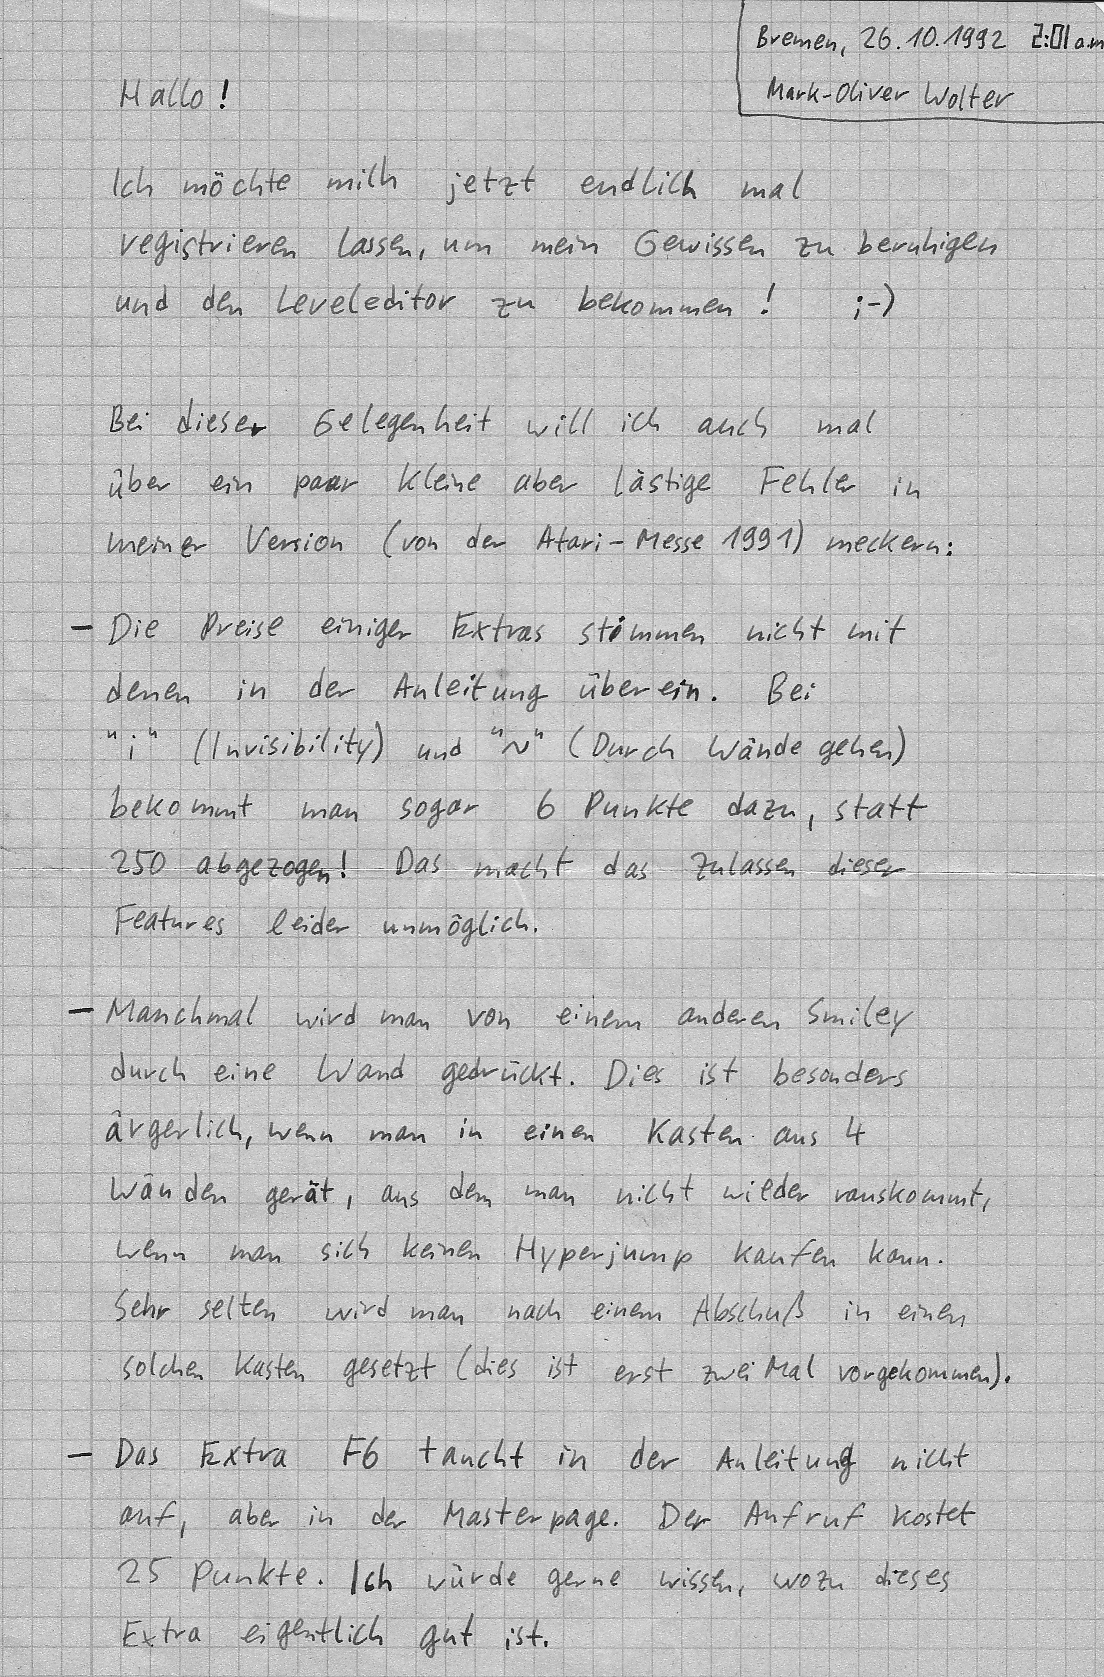 Bremen, 26.10.1992 2:01 a.m
Mark-Oliver Wolter
Hallo!
Ich möchte mich jetzt endlich mal
registrieren lassen, um mein Gewissen zu beruhigen
und den Leveleditor zu bekommen! ;-)
Bei dieser Gelegenheit will ich auch mal
über ein paar kleine aber lästige Fehler in
meiner Version (von der Atari-Messe 1991) meckern:
- Die Preise einiger Extras stimmen nicht mit
denen in der Anleitung überein. Bei
"i" (Invisibility) und "~" (Durch Wände gehen)
bekommt man sogar 6 Punkte dazu, statt
250 abgezogen! Das macht das Zulassen dieser
Features leider unmöglich.
- Manchmal wird man von einem anderen Smiley
durch eine Wand gedrückt. Dies ist besonders
ärgerlich, wenn man in einen Kasten aus 4
Wänden gerät, aus dem man nicht wieder rauskommt,
wenn man sich keinen Hyperjump kaufen kann.
Sehr selten wird man nach einem Abschuß in einen
solchen Kasten gesetzt (dies ist erst zwei Mal vorgekommen).
- Das Extra F6 taucht in der Anleitung nicht
auf, aber in der Masterpage. Der Aufruf kostet
25 Punkte. Ich würde gerne wissen, wozu dieses
Extra eigentlich gut ist.